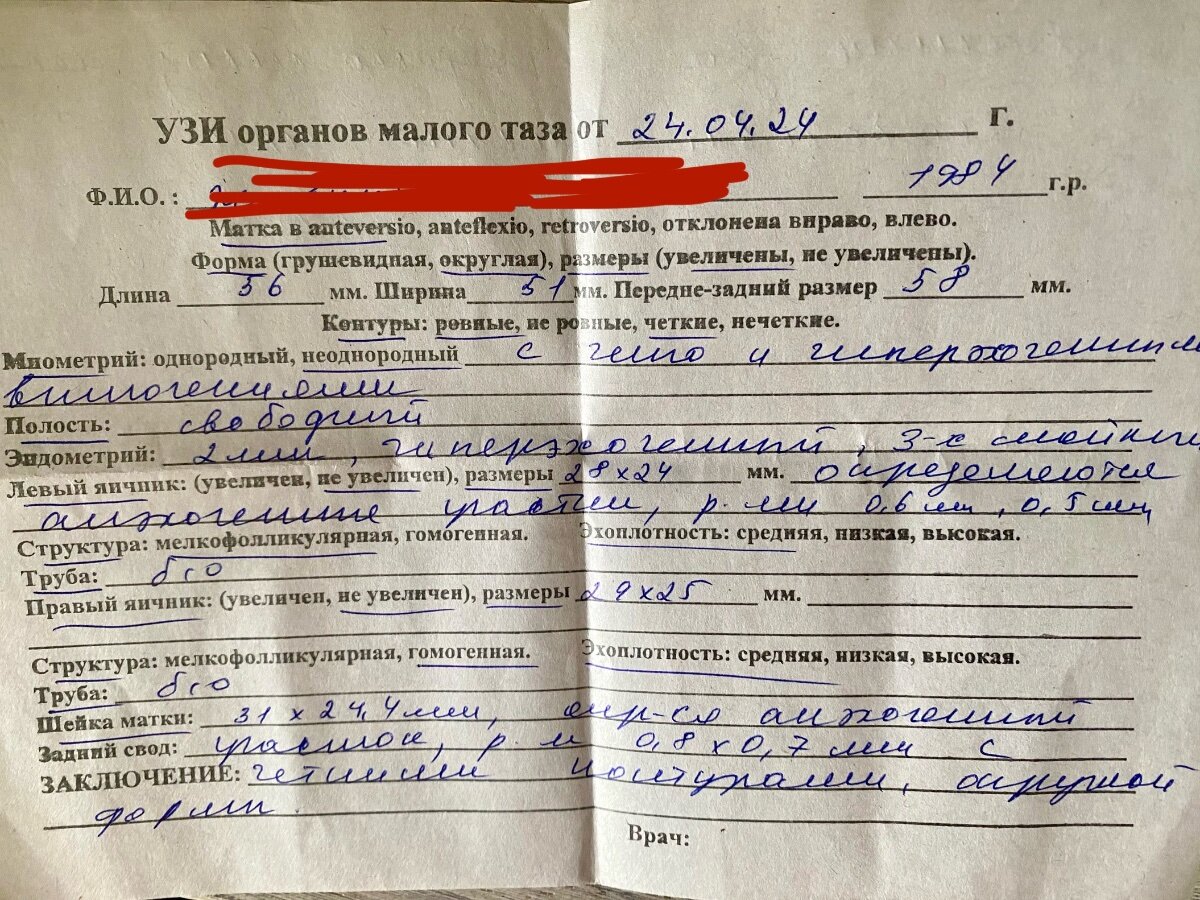 УЗИ органов малого таза от 24.04.24 г.
Ф.И.О. : 1984 г.р.
Матка в anteversio, anteflexio, retroversio, отклонена вправо, влево.
Форма (грушевидная, округлая), размеры (увеличены, не увеличены).
Длина 56 мм. Ширина 51 мм. Передне-задний размер 58 мм.
Контуры: ровные, не ровные, четкие, нечеткие.
Миометрий: однородный, неоднородный с гипо и гиперэхогенными
включениями
Полость: свободный
Эндометрий: 2 мм, гиперэхогенный, 3-х слойный
Левый яичник: (увеличен, не увеличен), размеры 28x24 мм. определяются
анэхогенные участки, р-ми 0,6 мм, 0,5 мм
Структура: мелкофолликулярная, гомогенная. Эхоплотность: средняя, низкая, высокая.
Труба: б/о
Правый яичник: (увеличен, не увеличен), размеры 29x25 мм.
Структура: мелкофолликулярная, гомогенная. Эхоплотность: средняя, низкая, высокая.
Труба: б/о
Шейка матки: 31 x 24,4 мм, опр-ся анэхогенный
Задний свод: участок, р-м 0,8 x 0,7 мм с
ЗАКЛЮЧЕНИЕ: четкими контурами, округлой
формы.
Врач: